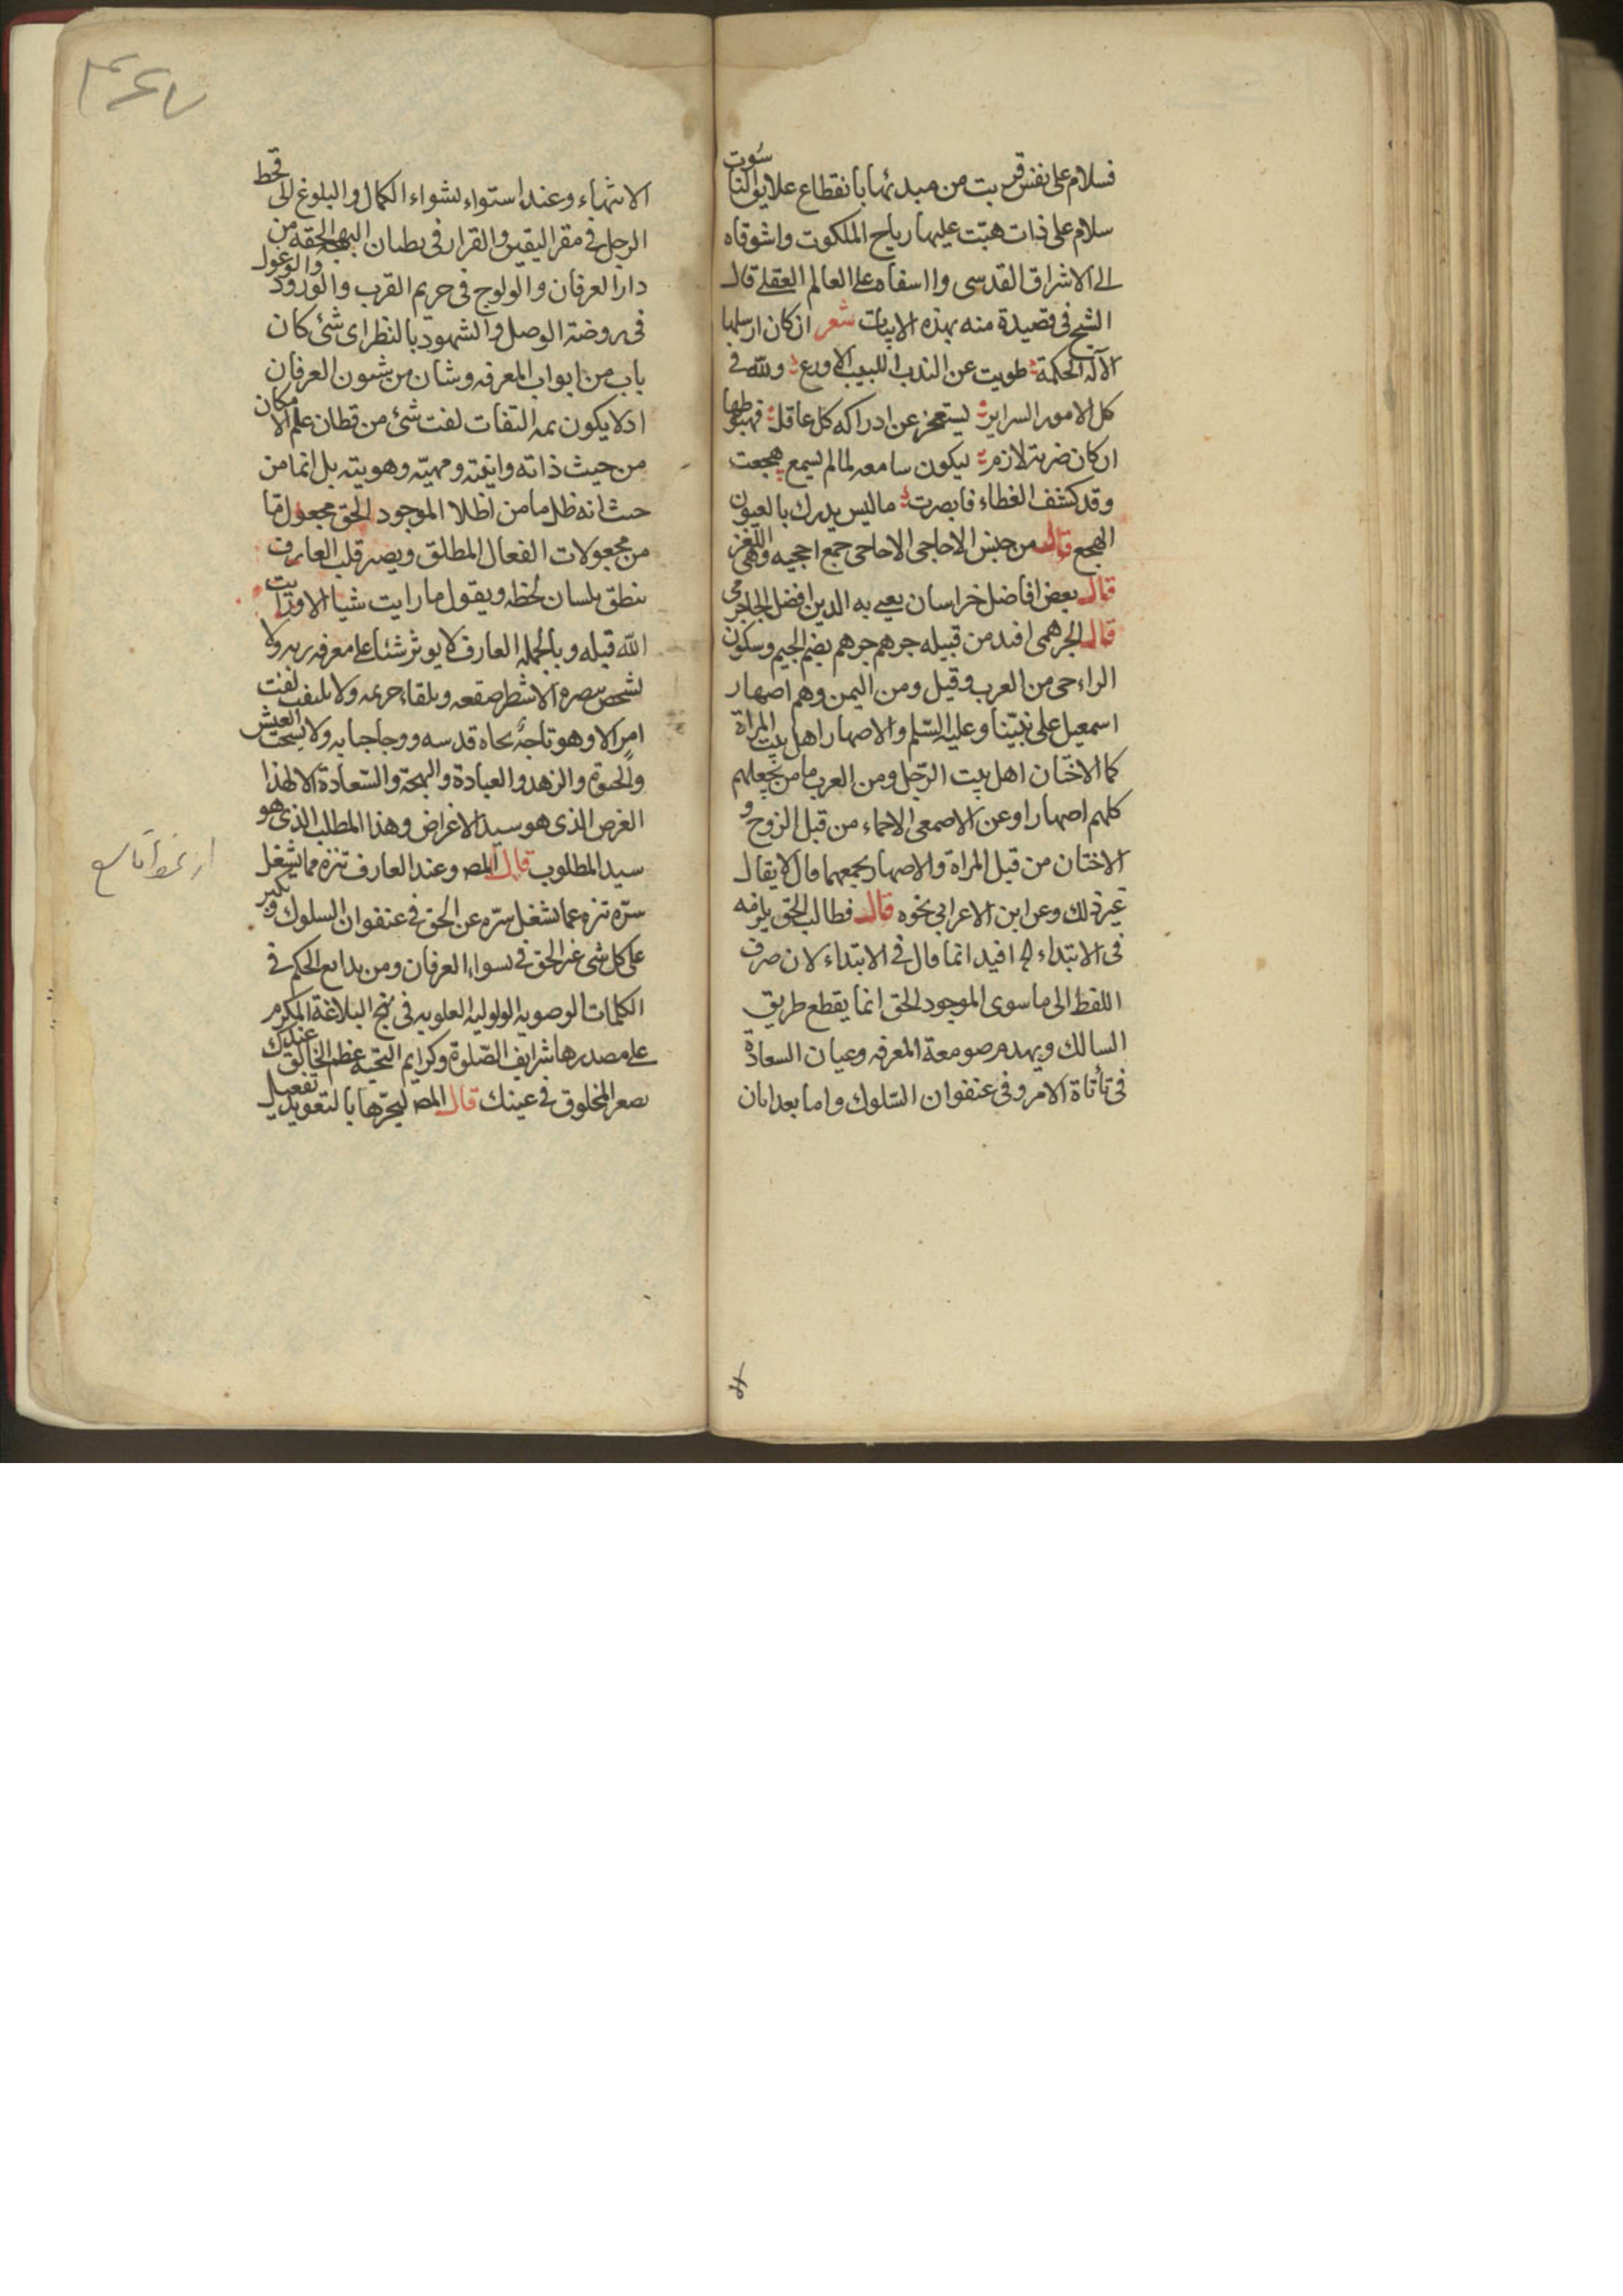 فسلام على نفس قربت من مبدئها بانقطاع علايق الناسوت
سلام على ذات هبّت عليها رياح الملكوت واشوقاه
الى الاشراق القدسى وااسفاه على العالم العقلى قال
الشيخ فى قصيدة منه بهذه الابيات شعر ان كان ارسلها
الآله لحكمة طويت عن الندب اللبيب الاورع ولله فى
كل الامور السراير ليستعجز عن ادراكه كل عاقل فهبوطها
ان كان ضربة لازم ليكون سامعه لما لم يسمع هجعت
وقد كشف الغطاء فابصرت ما ليس يدرك بالعيون
الهجع قال من جنس الاحاجى الاحاجى جمع احجيه وهى اللغز
قال بعض افاضل خراسان يعنى به الدين افضل الجاجرمى
قال الجرهمى افند من قبيله جرهم جرهم بضم الجيم وسكون
الراء حى من العرب وقيل ومن اليمن وهم اصهار
اسمعيل على نبيّنا وعليه السّلم والاصهار اهل بيت المراة
كما الاختان اهل بيت الرّجل ومن العرب ما من يجعلهم
كلهم اصهارا وعن الاصمعى الاحماء من قبل الزوج و
الاختان من قبل المراة والاصهار يجمعهما قال لا يقال
غير ذلك وعن ابن الاعرابى نحوه قال فطالب الحق يلزمه
فى الابتداء افيد انما قال فى الابتداء لان صرف
اللفظ الى ما سوى الموجود الحق انما يقطع طريق
السالك ويهدم صومعة المعرفه وعيان السعادة
فى تأتاة الامر وفى عنفوان السّلوك واما بعد ابان
الانتهاء وعند استواء لشواء الكمال والبلوغ الى قحط
الرجل فى مقر اليقين والقرار فى بطنان البهجة الحقه من
دار العرفان والولوج فى حريم القرب والورود والوغول
فى روضة الوصل والشهود بالنظر اى شئ كان
باب من ابواب المعرفه وشان من شئون العرفان
اذ لا يكون ثمه التفات لفت شئ من قطان علم الامكان
من حيث ذاته وانيّته ومهيّته وهويته بل انما من
حيث انه ظل ما من اظلال الموجود الحق مجعول ما
من مجعولات الفعال المطلق ويصر قلب العارف
ينطق بلسان لحظه ويقول ما رايت شيا الا ورايت
الله قبله وبالجمله العارف لا يوثر شئا على معرفه ربه ولا
يشخص ببصره الا شطر صقعه وتلقاء حريمه ولا يلتفت لفت
امر الا وهو تاجهٌ تجاه قدسه ووجاه جنابه ولا يستحب العيش
والحيوة والزهد والعبادة والبهجة والسّعادة الا لهذا
الغرض الذى هو سيد الاغراض وهذا المطلب الذى هو
سيد المطلوب قال المص وعند العارف تنزه مما يشغل
سرّه تنزه عما يشغل سرّه عن الحق فى عنفوان السلوك وتكبر
على كل شئ غير الحق فى سواء العرفان ومن بدايع الحكم فى
الكلمات الوصويه الولوليه العلويه فى نهج البلاغة المكرم
على مصدرها شرايف الصّلوة وكرايم التحيه عظم الخالق عندك
يصغر المخلوق فى عينك قال المص ليجرّها بالتعويد تفعيل